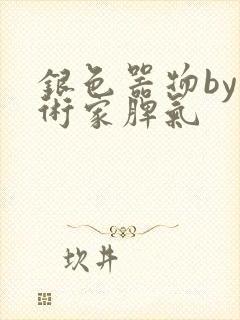 銀色器物by
術家脾氣
坎井